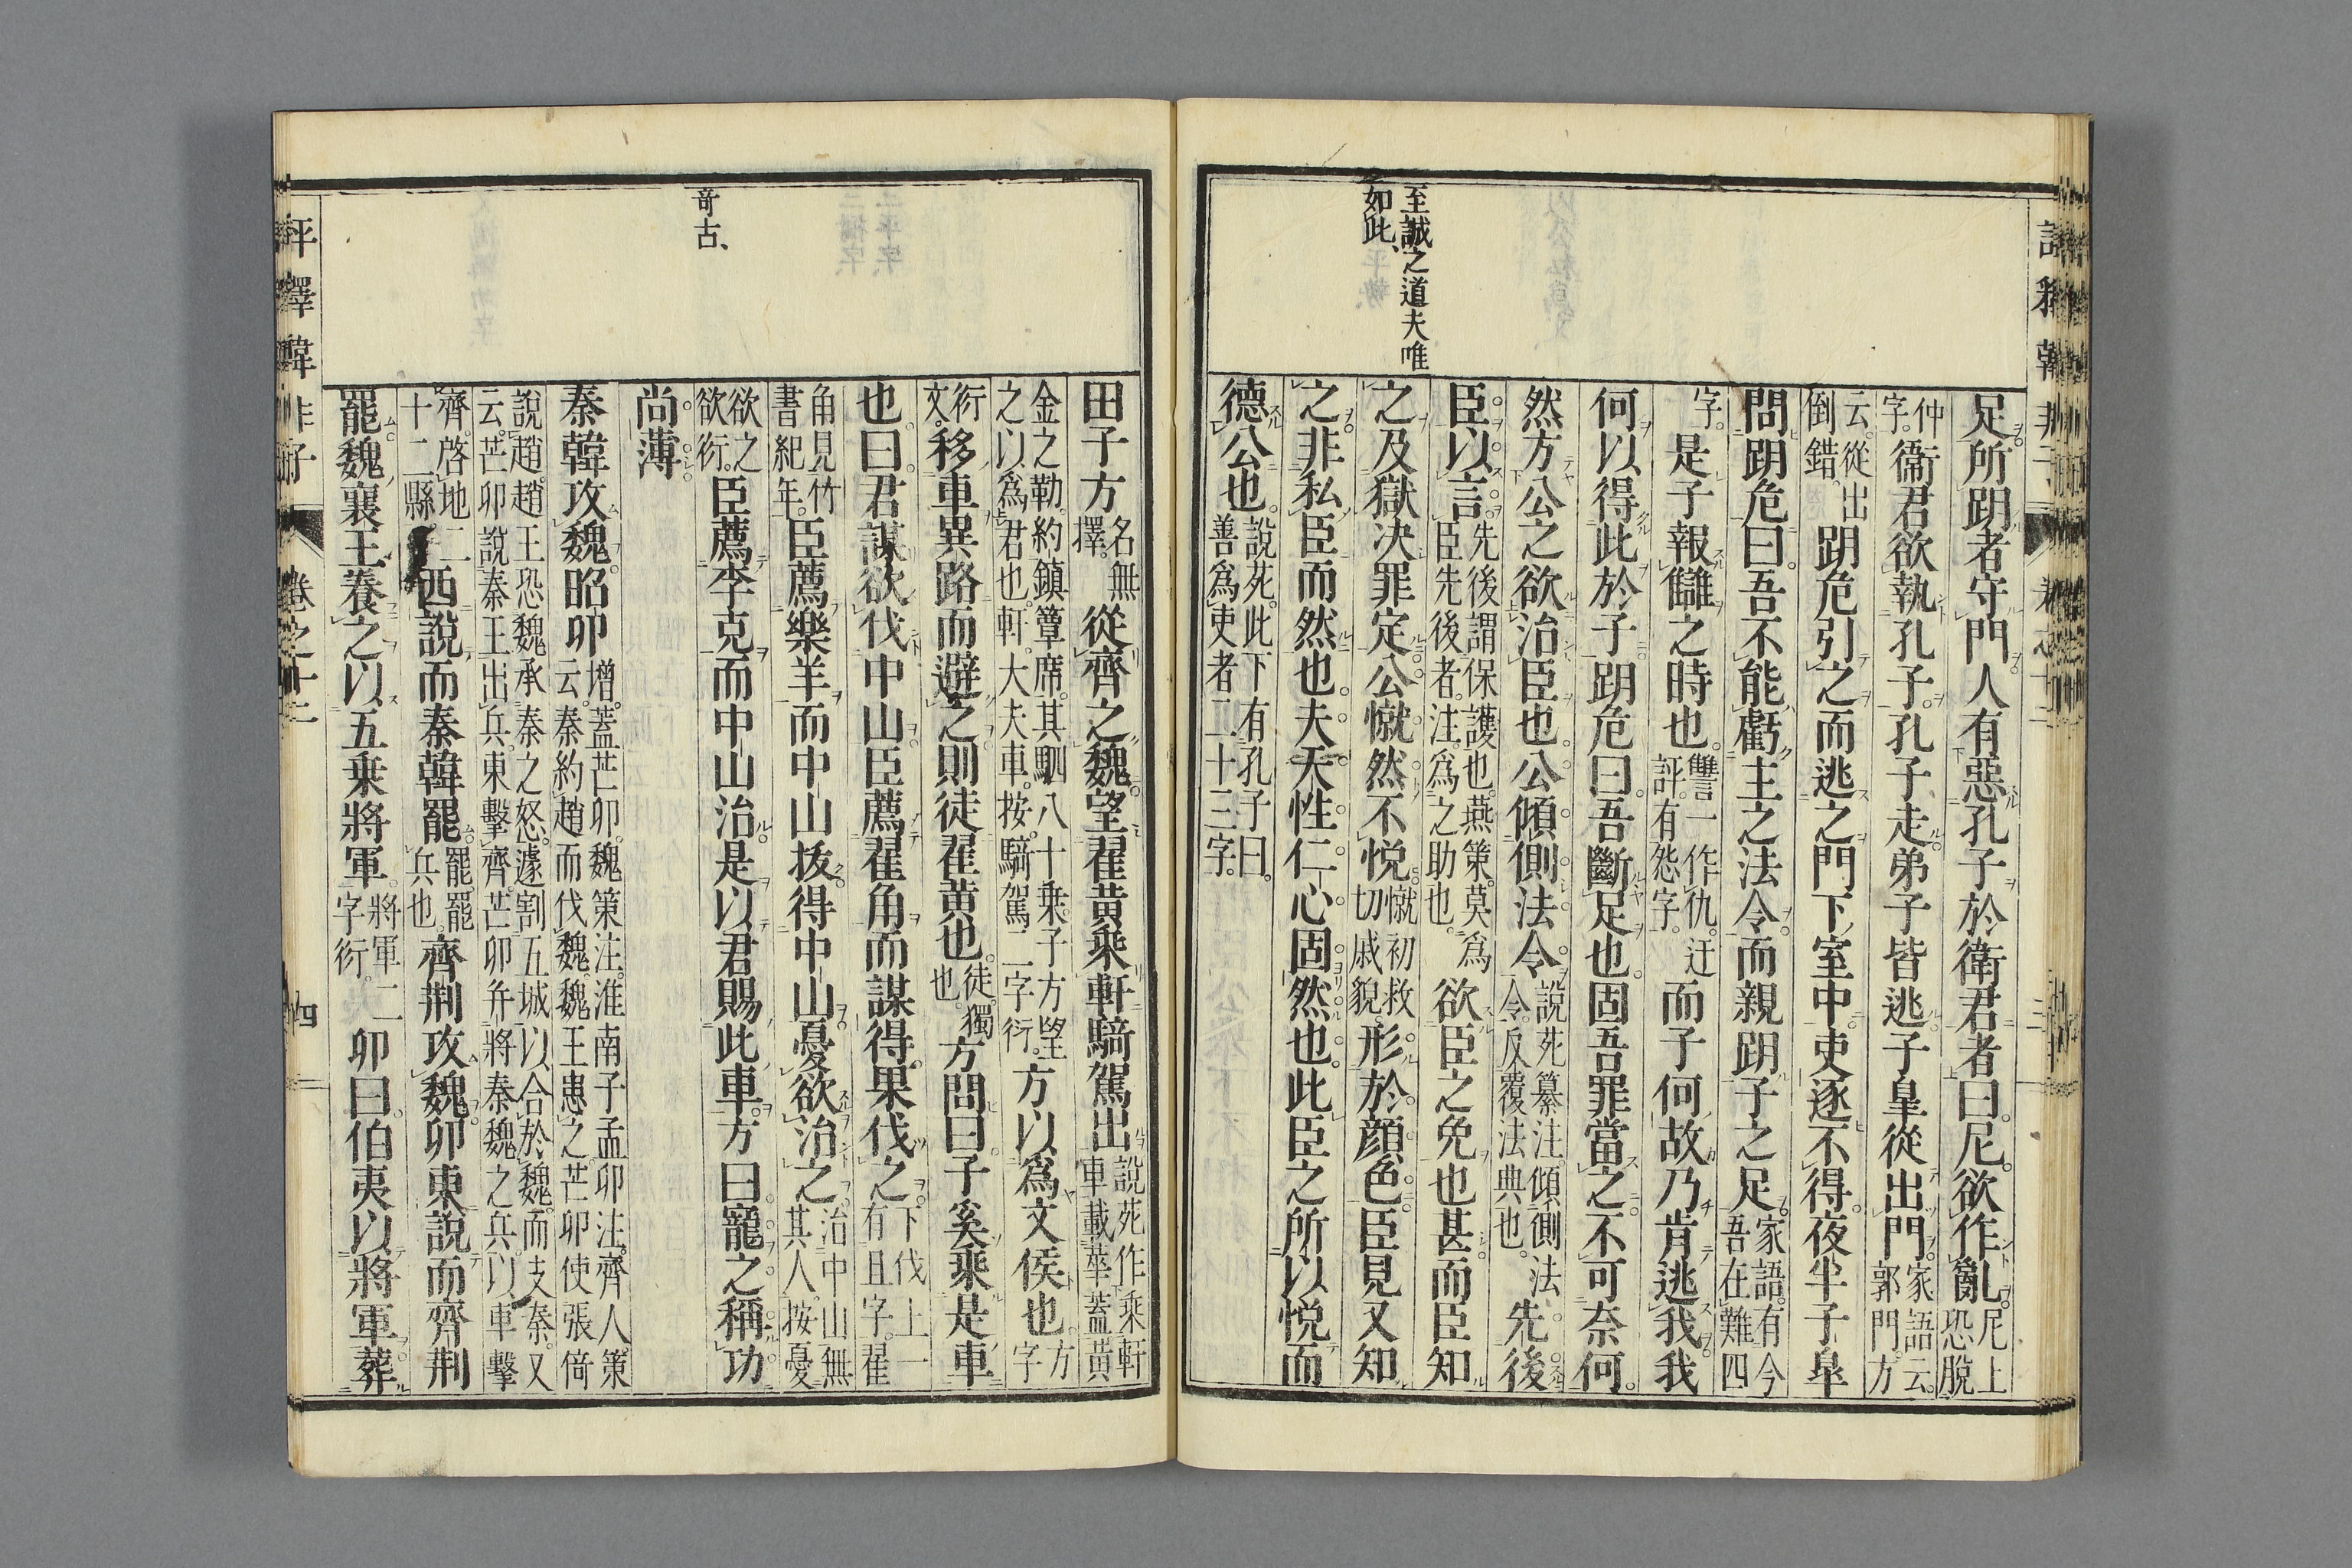 至誠之道夫唯
如此、
足所跀者守門人有惡孔子於衛君者曰尼欲作亂尼上恐脫
仲字。衞君欲執孔子孔子走弟子皆逃子皐從出門家語云。郭門。方
云。從出倒錯。跀危引之而逃之門下室中吏逐不得夜半子皐
問跀危曰吾不能虧主之法令而親跀子之足家語。有今吾在難四
字。是子報讎之時也讐一作仇。迂評。有怨字。而子何故乃肯逃我我
何以得此於子跀危曰吾斷足也固吾罪當之不可奈何
然方公之欲治臣也公傾側法令說苑纂注。傾側法令。反覆法典也。先後
臣以言先後謂保護也。燕策。莫爲臣先後者。注。爲之助也。欲臣之免也甚而臣知
之及獄决罪定公憱然不悅憱初救切。戚貌。形於顏色臣見又知
之非私臣而然也夫天性仁心固然也此臣之所以悅而
德公也說苑。此下有孔子曰。善爲吏者二十三字。
奇古、
田子方名無擇。從齊之魏望翟黃乘軒騎駕出說苑作乘軒車載華蓋黃
金之勒。約鎮簟席。其駟八十乘。子方望之以爲君也。軒。大夫車。按。騎駕二字衍。方以爲文侯也方字
衍文。移車異路而避之則徒翟黃也徒。獨也。方問曰子奚乘是車
也曰君謀欲伐中山臣薦翟角而謀得果伐之下伐上一有且字。翟
角見竹書紀年。臣薦樂羊而中山拔得中山憂欲治之治中山無其人。按憂
欲欲之欲衍。臣薦李克而中山治是以君賜此車方曰寵之稱功
尚薄
秦韓攻魏昭卯增。蓋芒卯。魏策注。淮南子孟卯注。齊人策云。秦約趙而伐魏。魏王患之芒卯使張倚
說趙。趙王恐魏承秦之怒。遽割五城以合於魏。而支秦。又云。芒卯說秦王出兵。東擊齊。芒卯幷將秦魏之兵。以車擊
齊。啓地二十二縣。西說而秦韓罷罷。罷兵也。齊荆攻魏卯東說而齊荆
罷魏襄王養之以五乘將軍將軍二字衍。卯曰伯夷以將軍葬
評釋韓非子 卷之十二 四